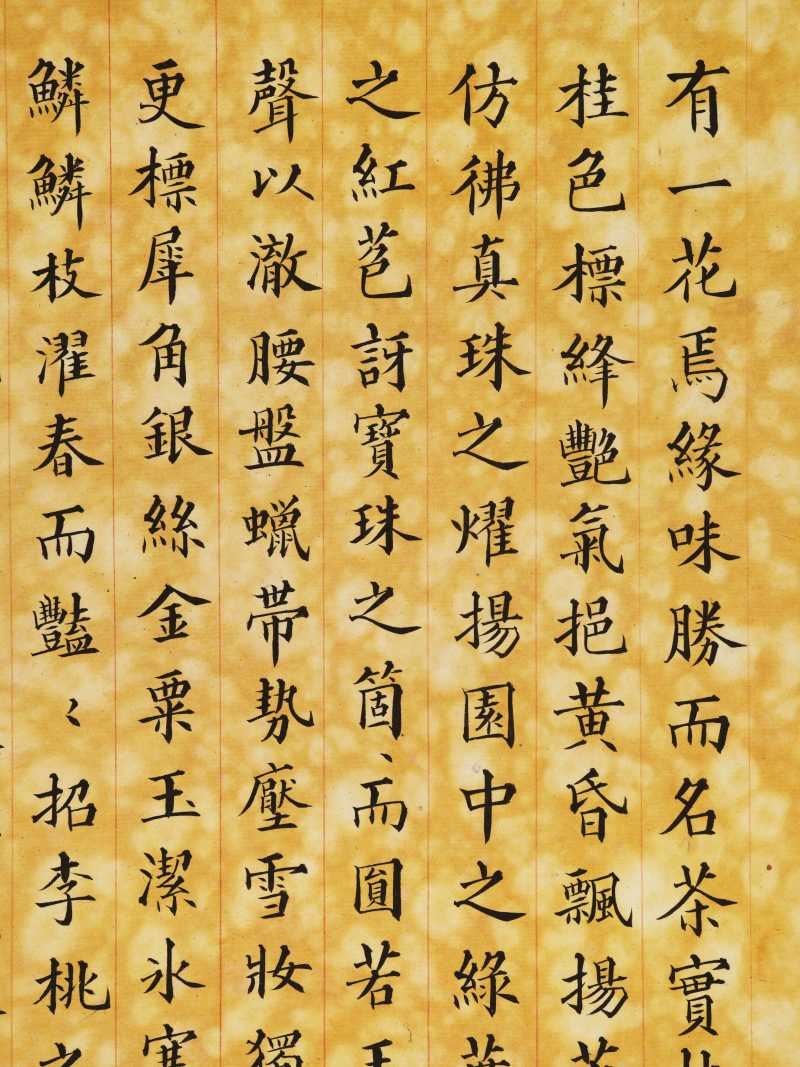 有一花焉緣味勝而名茶實
桂色標絳艷氣挹黃昏飄揚
仿彿真珠之燿揚園中之綠葉
之紅苞訝寶珠之箇、而圓若玉
聲以澈腰盤蠟帶勢壓雪妝獨
更標犀角銀絲金粟玉潔冰寒
鱗鱗枝濯春而豔〻招李桃之